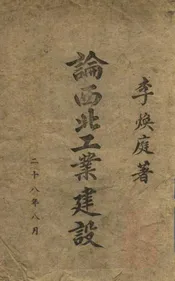 李煥庭著
論西北工業建設
二十八年八月